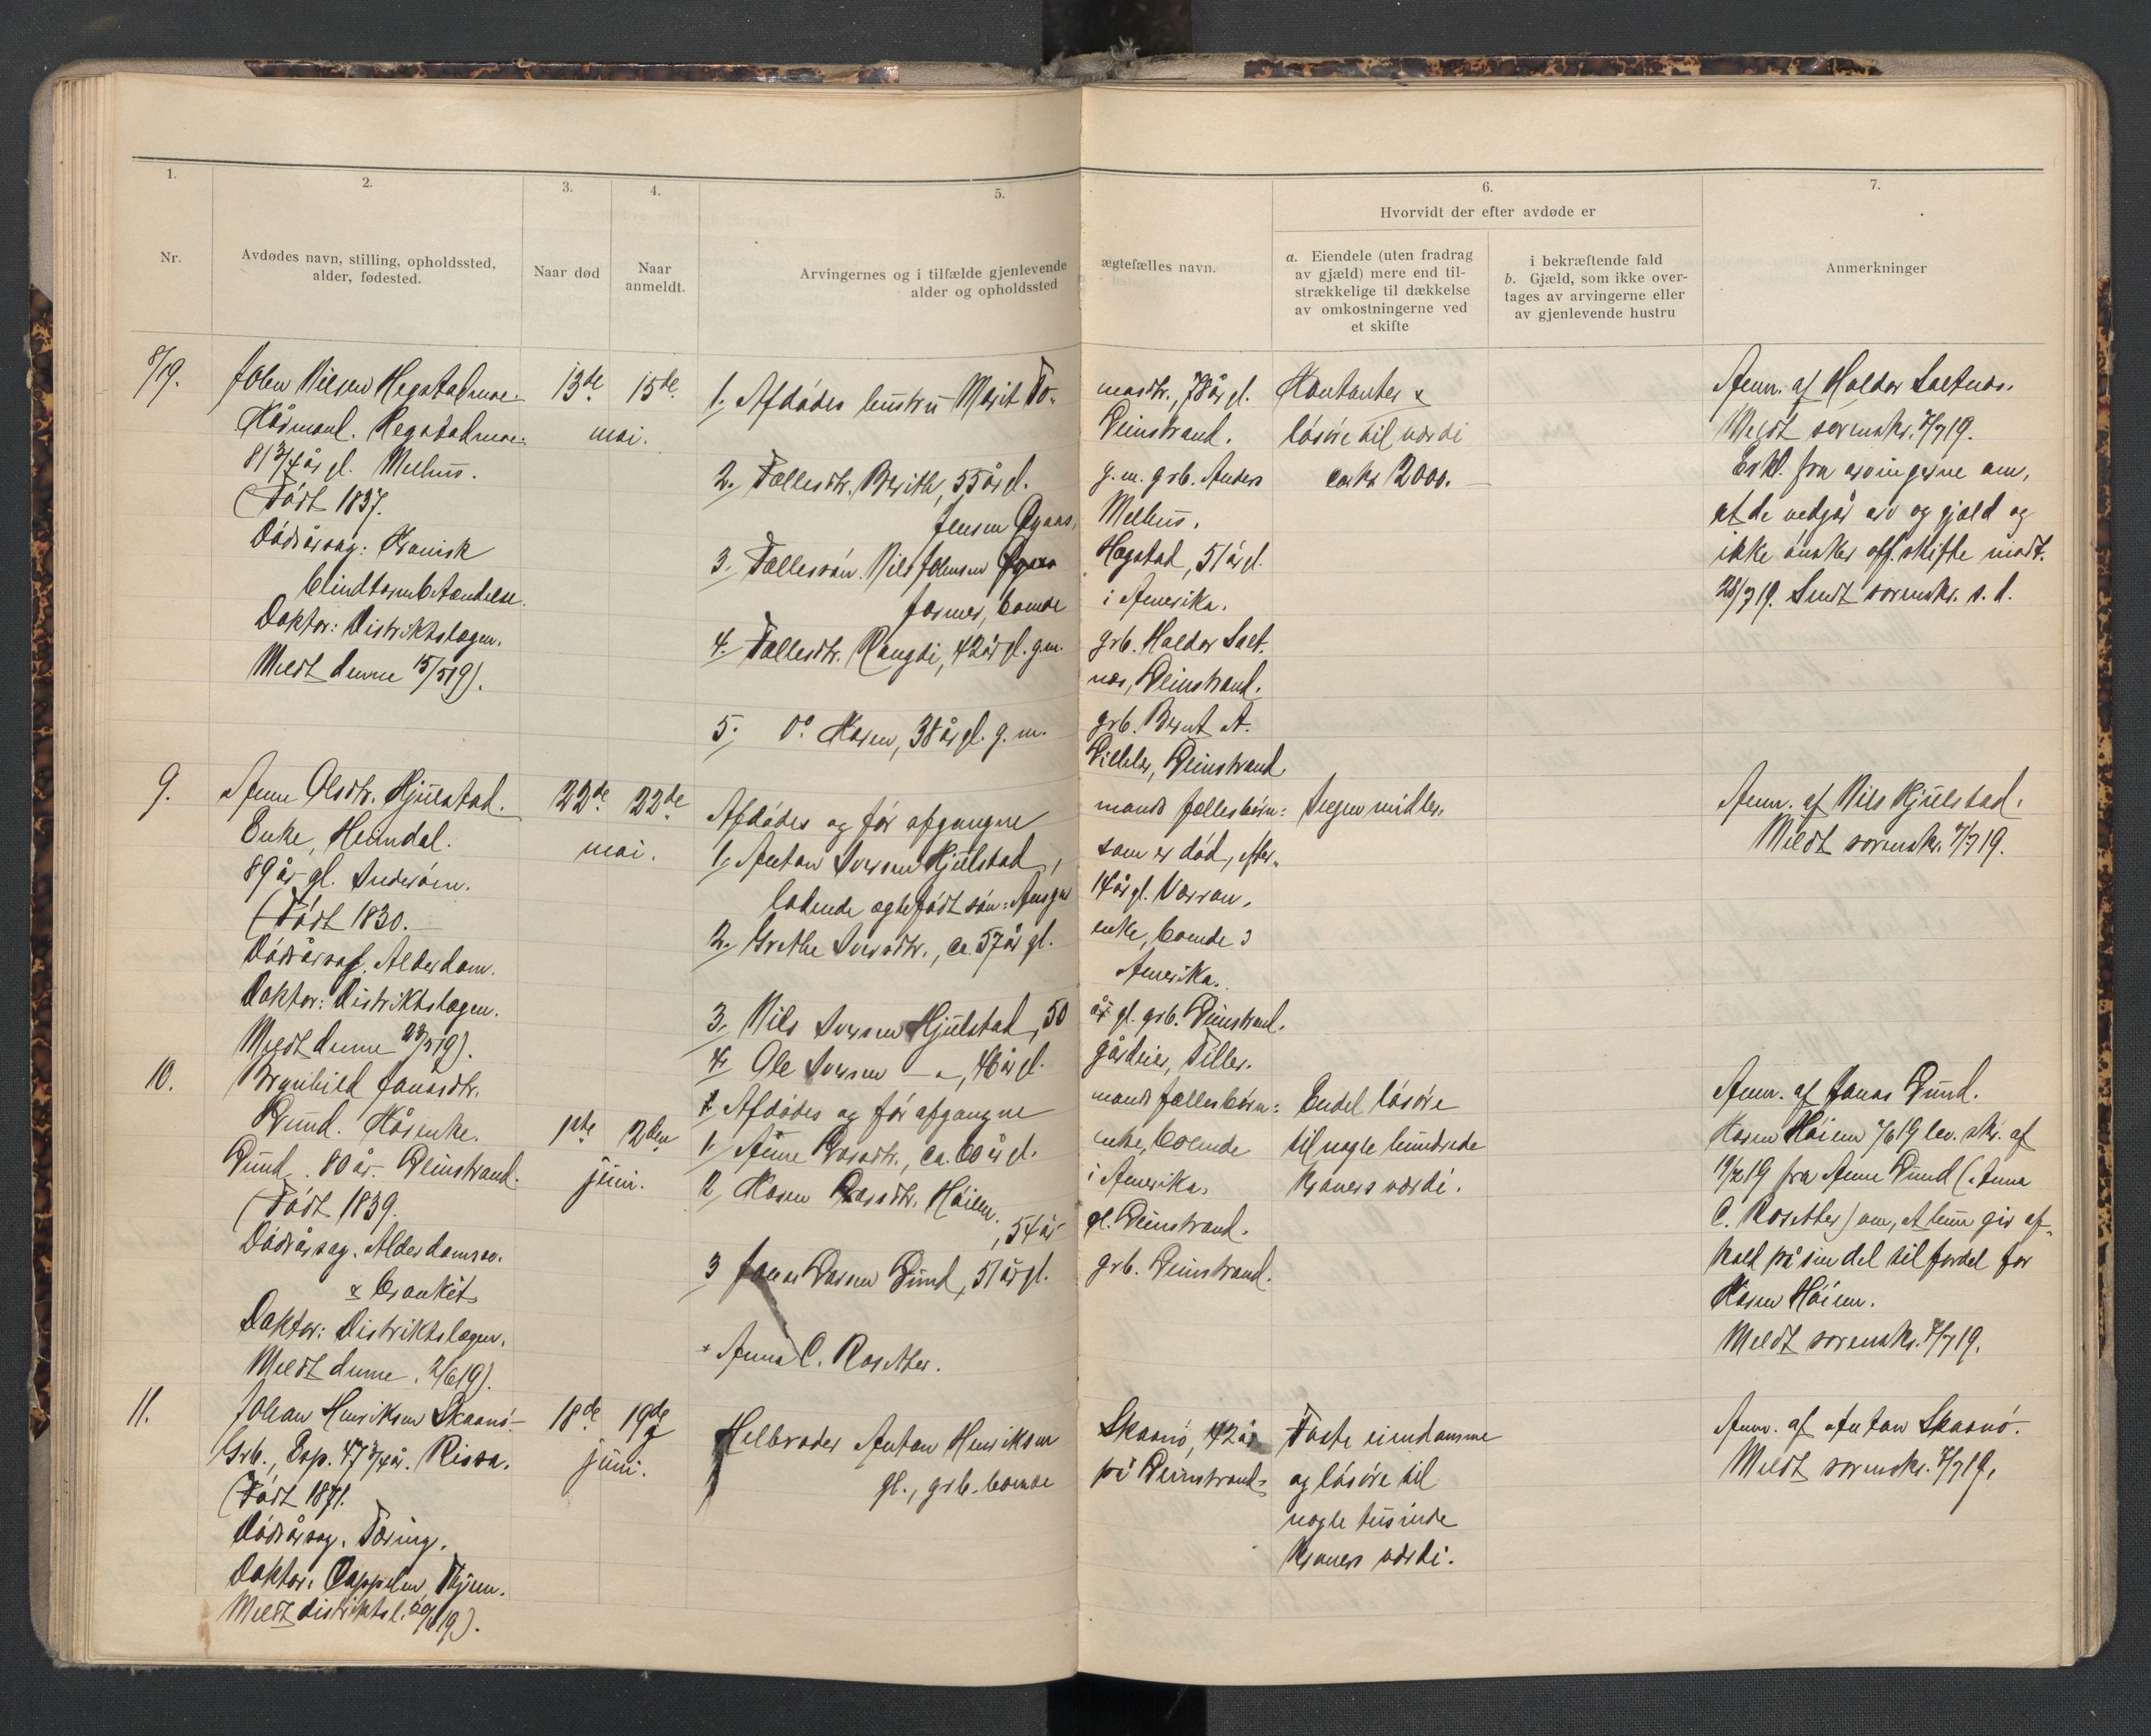 1.
2.
3.
4.
5.
6.
7.
Nr.
Avdødes navn, stilling, opholdssted,
alder, fødested.
Naar død
Naar
anmeldt.
Arvingernes og i tilfælde gjenlevende ægtefælles navn.
alder og opholdssted
Hvorvidt der efter avdøde er
a. Eiendele (uten fradrag
av gjæld) mere end til-
strækkelige til dækkelse
av omkostningerne ved
et skifte
i bekræftende fald
b. Gjæld, som ikke over-
tages av arvingerne eller
av gjenlevende hustru
Anmerkninger
8/19.
John Nilsen Hegstadmoe.
Kårmand. Hegstadmoe.
81 3/4 år gl. Melhus.
(Født 1837.
Dødsårsag: Kronisk
blindtarmbetændelse.
Doktor: Distriktslægen.
Meldt denne 15/5 19).
13de 15de
mai.
1. Afdødes hustru Marit To-
masdtr., 78 år gl.
Leinstrand.
2. Fællesdtr. Berith, 55 år gl.
g.m. grb. Anders
Jensen Øyaas,
Melhus.
3. Fællessøn Nils Johnsen
Hegstad, 51 år gl.
farmer, boende
i Amerika.
4. Fællesdtr. Rangdi, 42 år gl. g.m.
grb. Haldor Saet-
nes, Leinstrand.
5. Do Karen, 38 år gl. g.m.
grb. Bernt A.
Leinstrand
Kontanter &
løsøre til værdi
ca kr 2000.
Anm. af Haldor Saetnes.
Meldt sorenskr. 7/7 19.
Erkl. fra arvingerne om,
at de vedgår arv og gjæld og
ikke ønsker off. skifte modt.
28/7 19. Sendt sorenskr. s.d.
9.
Anne Olsdtr. Hjulstad.
Enke, Heimdal.
89 år gl. Inderøen.
(Født 1830.
Dødsårsag. Alderdom.
Doktor: Distriktslægen.
Meldt denne 23/5 19).
22de 22de
mai.
Afdødes og før afgangne
mands fællesbørn:
1. Anton Iversen Hjulstad,
som er død, efter-
ladende ægtefødt søn: Ansgar
14 år gl. Verran.
2. Grethe Iversdtr., ca. 57 år gl.
enke, boende i
Amerika.
3. Nils Iversen Hjulstad, 50
år gl. grb. Leinstrand.
4. Ole Iversen — " —, 46 år gl.
gårdeier, Tiller.
Ingen midler.
Anm. af Nils Hjulstad.
Meldt sorenskr. 7/7 19.
10.
Brynhild Jonasdtr.
Lund. Kårenke.
Lund. 80 år. Leinstrand.
(Født 1839.
Dødsårsag. Alderdomssv.
& bronkit
Doktor: Distriktslægen.
Meldt denne 2/6 19).
1ste 2den
juni.
Afdødes og før afgangne
mands fællesbørn:
1. Anne Larsdtr., ca. 60 år gl.
enke, boende
i Amerika.
2 Karen Larsdtr. Høiem.
, 54 år
gl. Leinstrand.
3 Jonas Larsen Lund, 51 år gl.
grb. Leinstrand.
* Anna C. Rosetter.
Endel løsøre
til nogle hundrede
kroners værdi.
Anm. af Jonas Lund.
Karen Høiem 7/8 19 lev. skr. af
19/7 19 fra Anne Lund (Anna
C. Rosetter) om, at hun gir af-
kald på sin del til fordel for
Karen Høiem.
Meldt sorenskr. 7/7 19.
11.
Johan Henriksen Skaanø
Grb., Esp. 47 3/4 år. Rissa.
(Født 1871.
Dødsårsag. Tæring.
Doktor. Cappelen, Thjem.
Meldt distriktsl. 20/6 19).
18de 19de
juni.
Helbroder Anton Henriksen
Skaanø, 42 år
gl., grb. boende
på Leinstrand.
Faste eiendomme
og løsøre til
nogle tusinde
kroners værdi.
Anm. af Anton Skaanø.
Meldt sorenskr. 7/7 19.